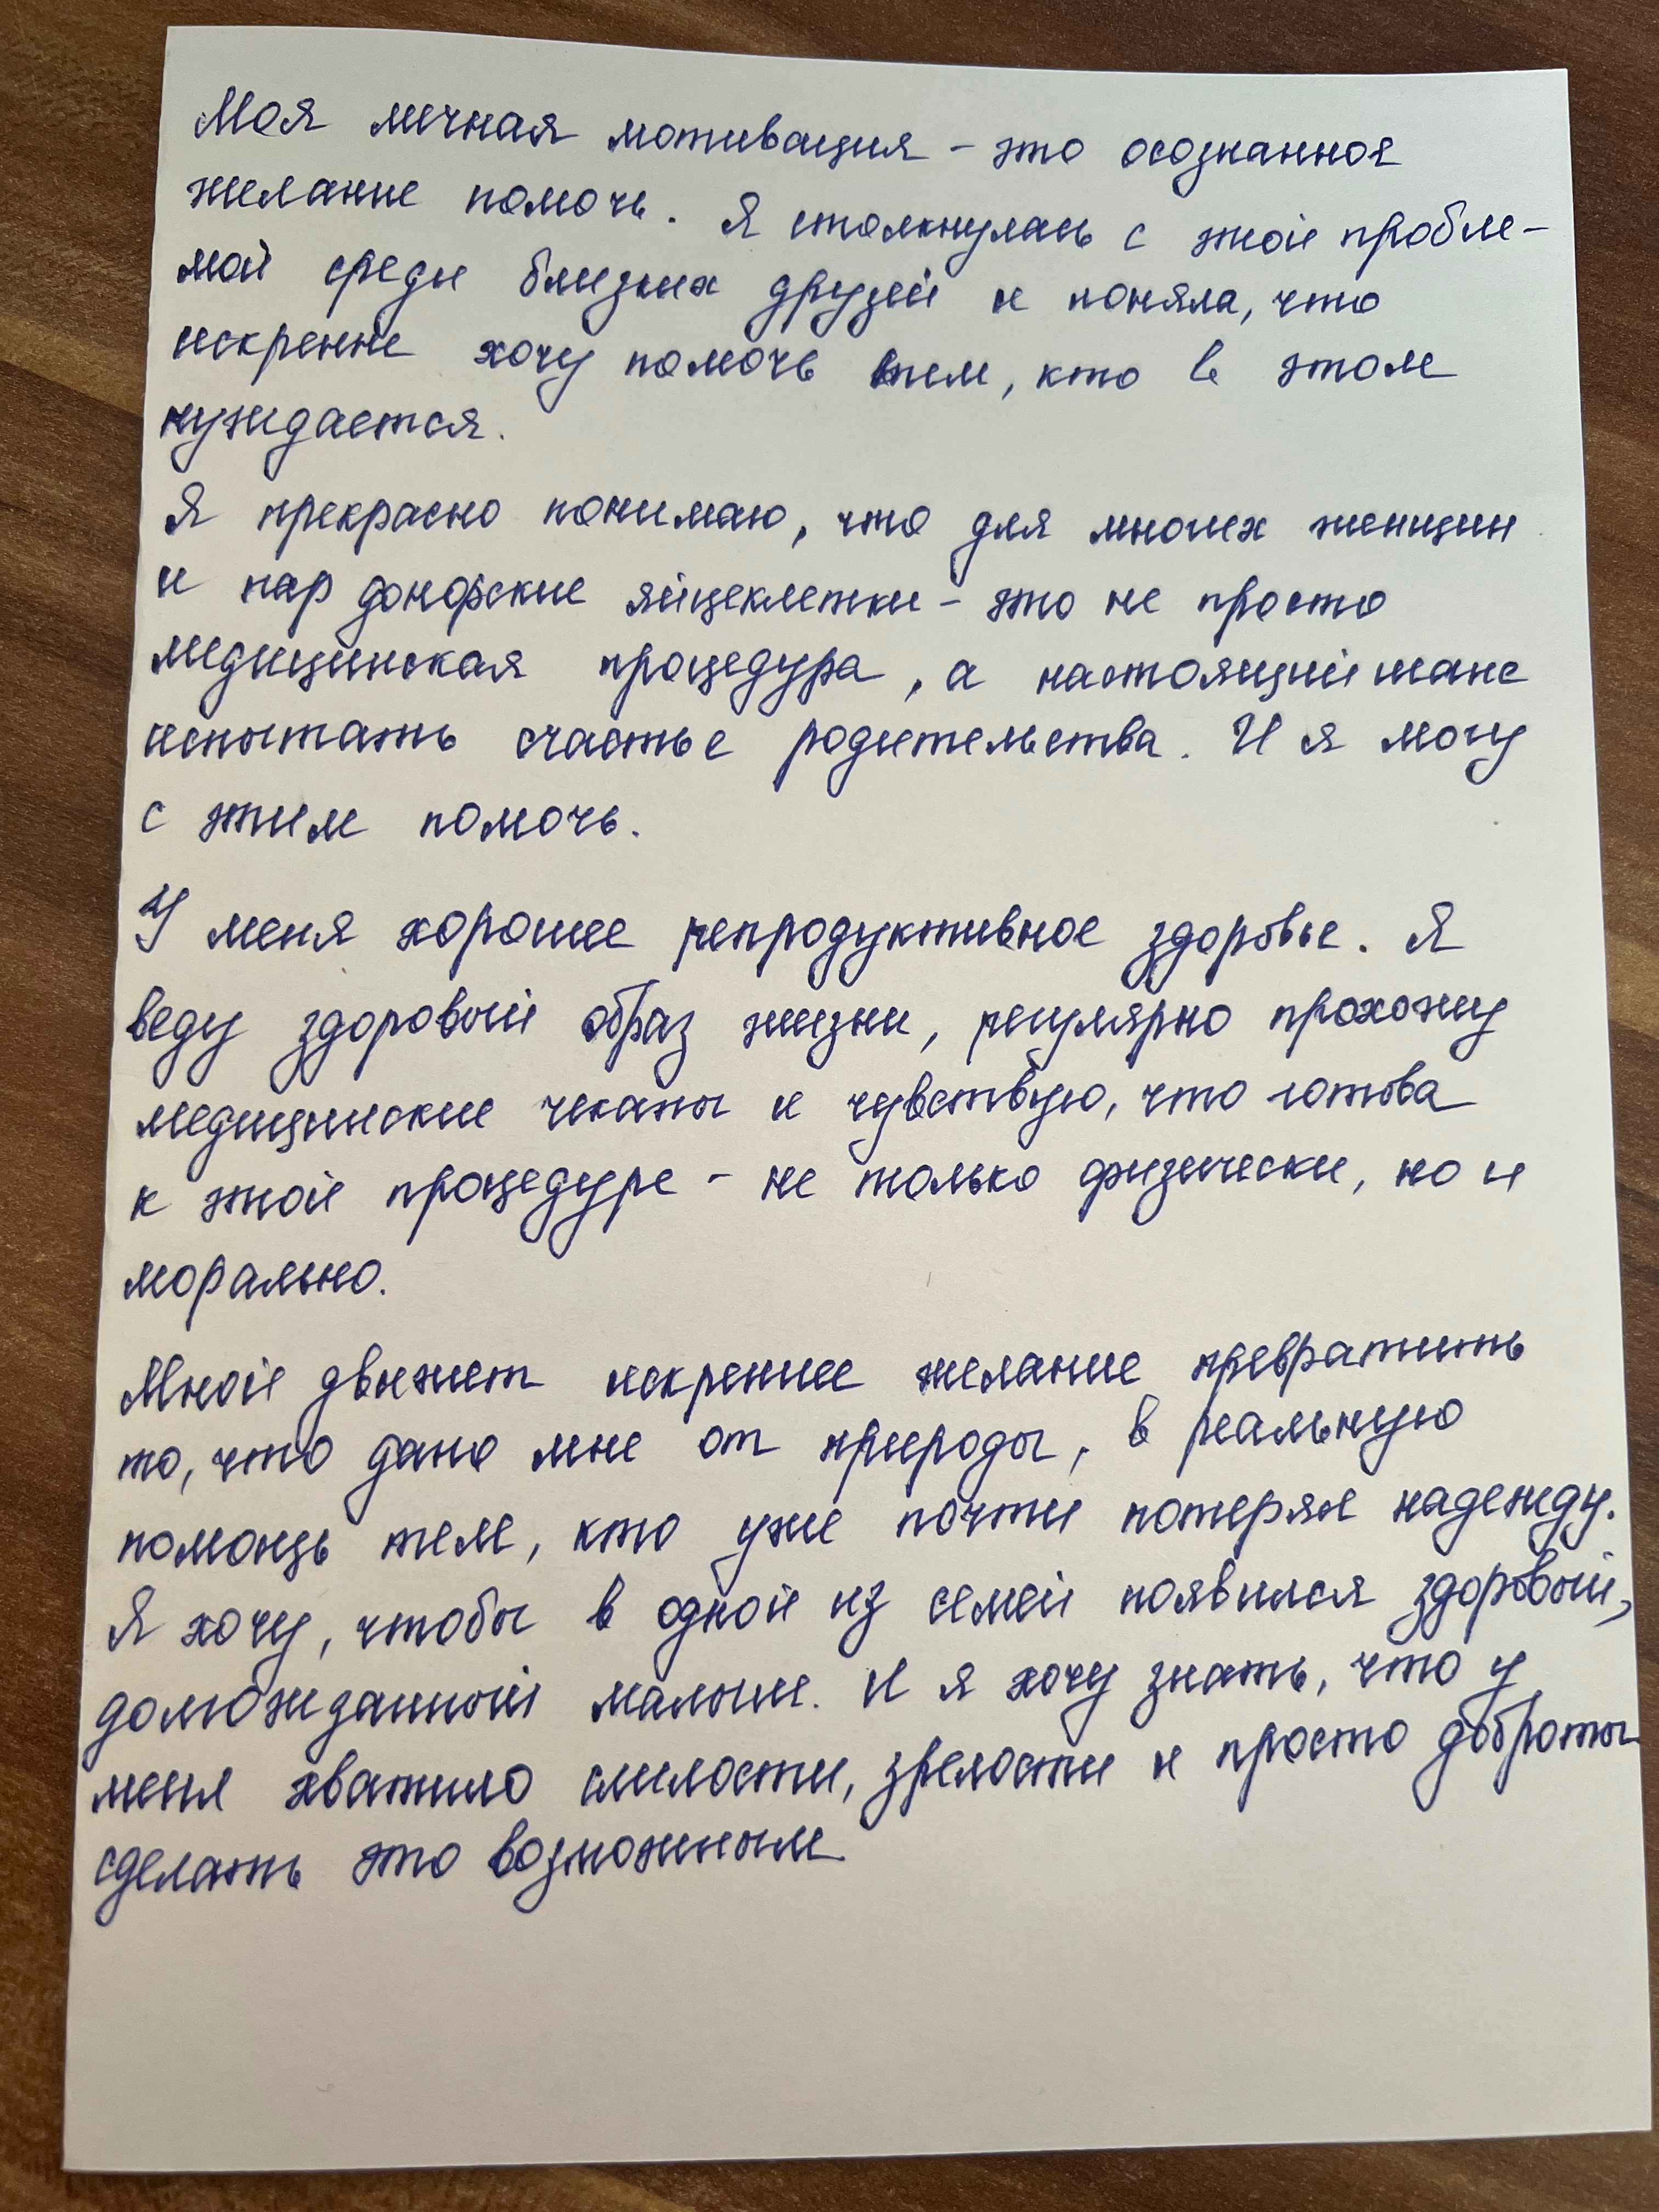 Моя личная мотивация - это осознанное
желание помочь. Я столкнулась с этой пробле-
мой среди близких друзей и поняла, что
искренне хочу помочь тем, кто в этом
нуждается.
Я прекрасно понимаю, что для многих женщин
и пар донорские яйцеклетки - это не просто
медицинская процедура, а настоящий шанс
испытать счастье родительства. И я могу
с этим помочь.
У меня хорошее репродуктивное здоровье. Я
веду здоровый образ жизни, регулярно прохожу
медицинские чекапы и чувствую, что готова
к этой процедуре - не только физически, но и
морально.
Мной движет искреннее желание превратить
то, что дано мне от природы, в реальную
помощь тем, кто уже почти потерял надежду.
Я хочу, чтобы в одной из семей появился здоровый,
долгожданный малыш. И я хочу знать, что у
меня хватило смелости, зрелости и просто доброты
сделать это возможным.